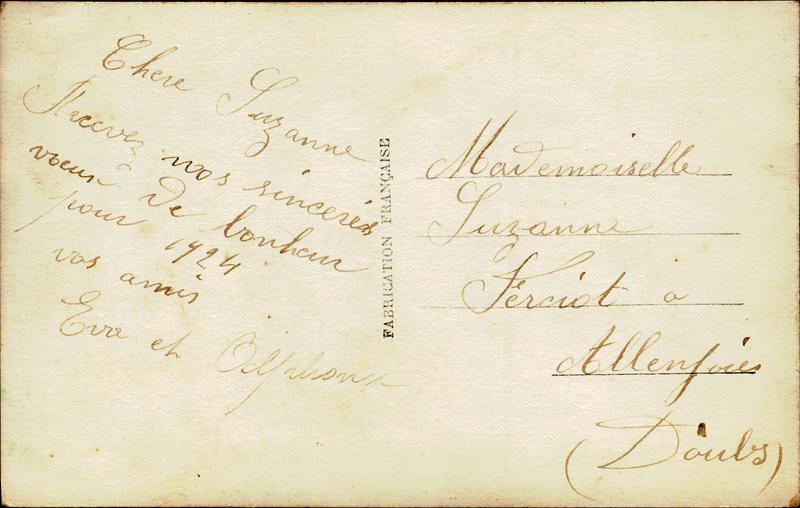 Chere Suzanne
Recevez nos sinceres
voeux de bonheur
pour 1924
vos amis
Eva et Alphonse
FABRICATION FRANÇAISE
Mademoiselle
Suzanne
Ferciot a
Allenjoie
(Doubs)